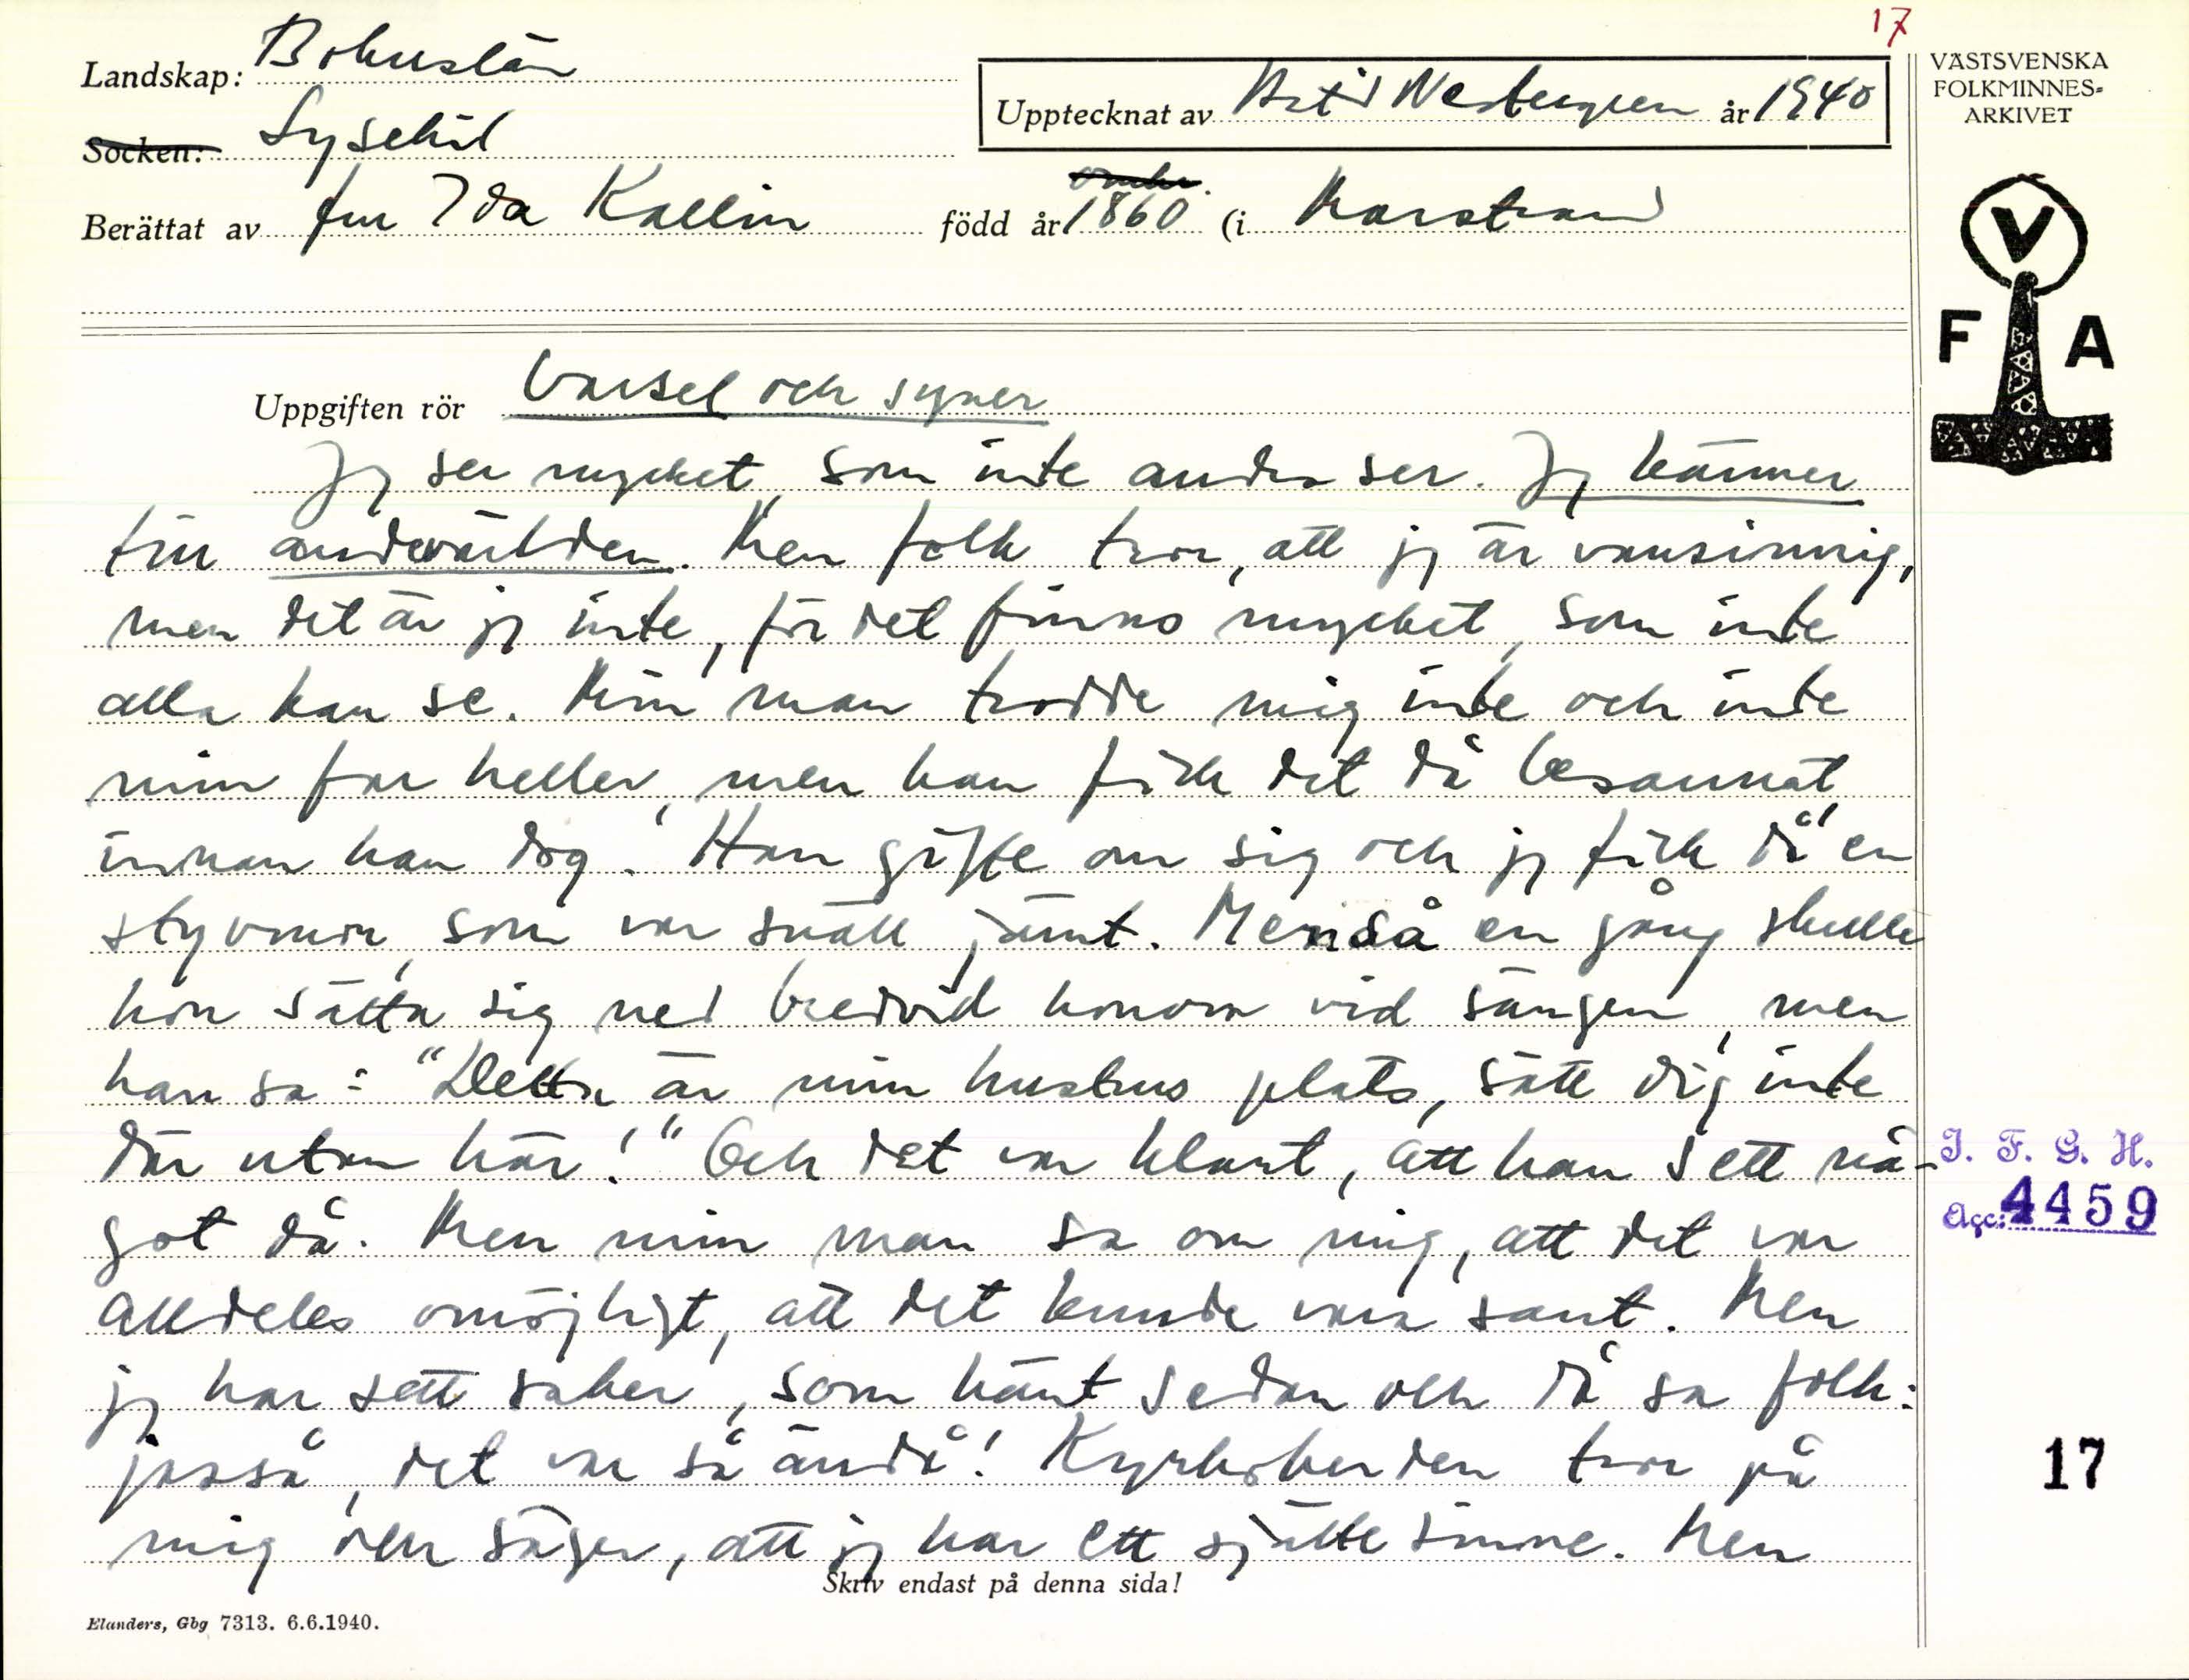 17
Landskap: Bohuslän
Upptecknat av Astrid Westergren år 1940
VÄSTSVENSKA
FOLKMINNES-
ARKIVET
Socken: Lysekil
Berättat av fru Ida Kallin född år 1860 (i Marstrand
V
F A
Uppgiften rör Varsel och syner
Jag ser mycket, som inte andra ser. Jag känner
till andevärlden. Men folk tror, att jag är vansinnig,
men det är jag inte, för det finns mycket, som inte
alla kan se. Min man trodde mig inte och inte
min far heller, men han fick det då besannat,
innan han dog. Han gifte om sig och jag fick då en
styvmor, som var snäll jämt. Men så en gång skulle
hon sätta sig ned bredvid honom vid sängen, men
han sa: "Detta är min hustrus plats, sätt dig inte
där utan här!" Och det var klart, att han sett nå-
got då. Men min man sa om mig, att det var
alldeles omöjligt, att det kunde vara sant. Men
jag har sett saker, som hänt sedan och då sa folk:
jasså, det var så ändå! Kyrkoherden tror på
mig och säger, att jag har ett sjätte sinne. Men
Skriv endast på denna sida!
Elanders, Gbg 7313. 6.6.1940.
I. F. G. H.
Acc: 4459
17